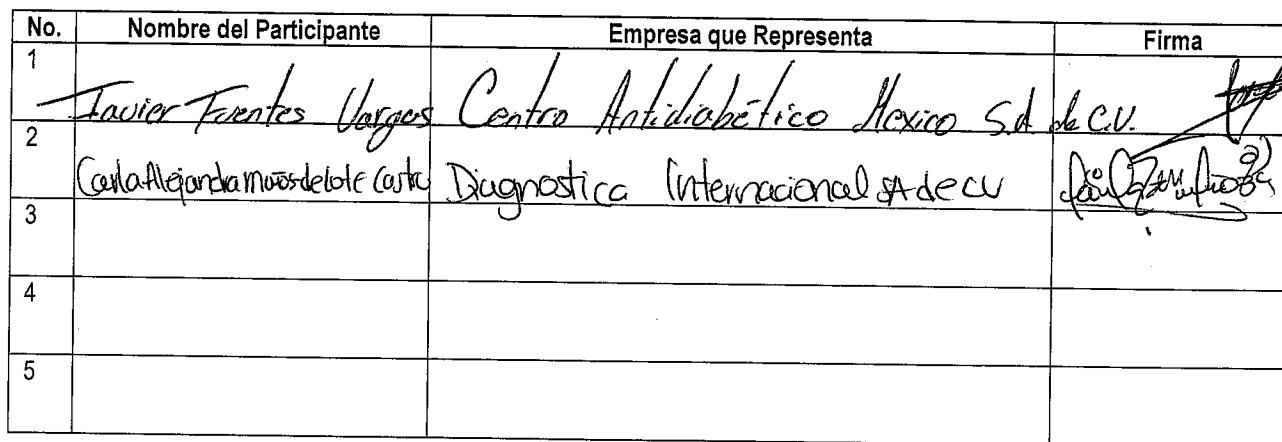 No. Nombre del Participante Empresa que Representa Firma
1 Javier Fuentes Vargas Centro Antidiabético Mexico S.A de C.V.
2 Carla Alejandra Diagnostica Internacional SA de CV
3
4
5